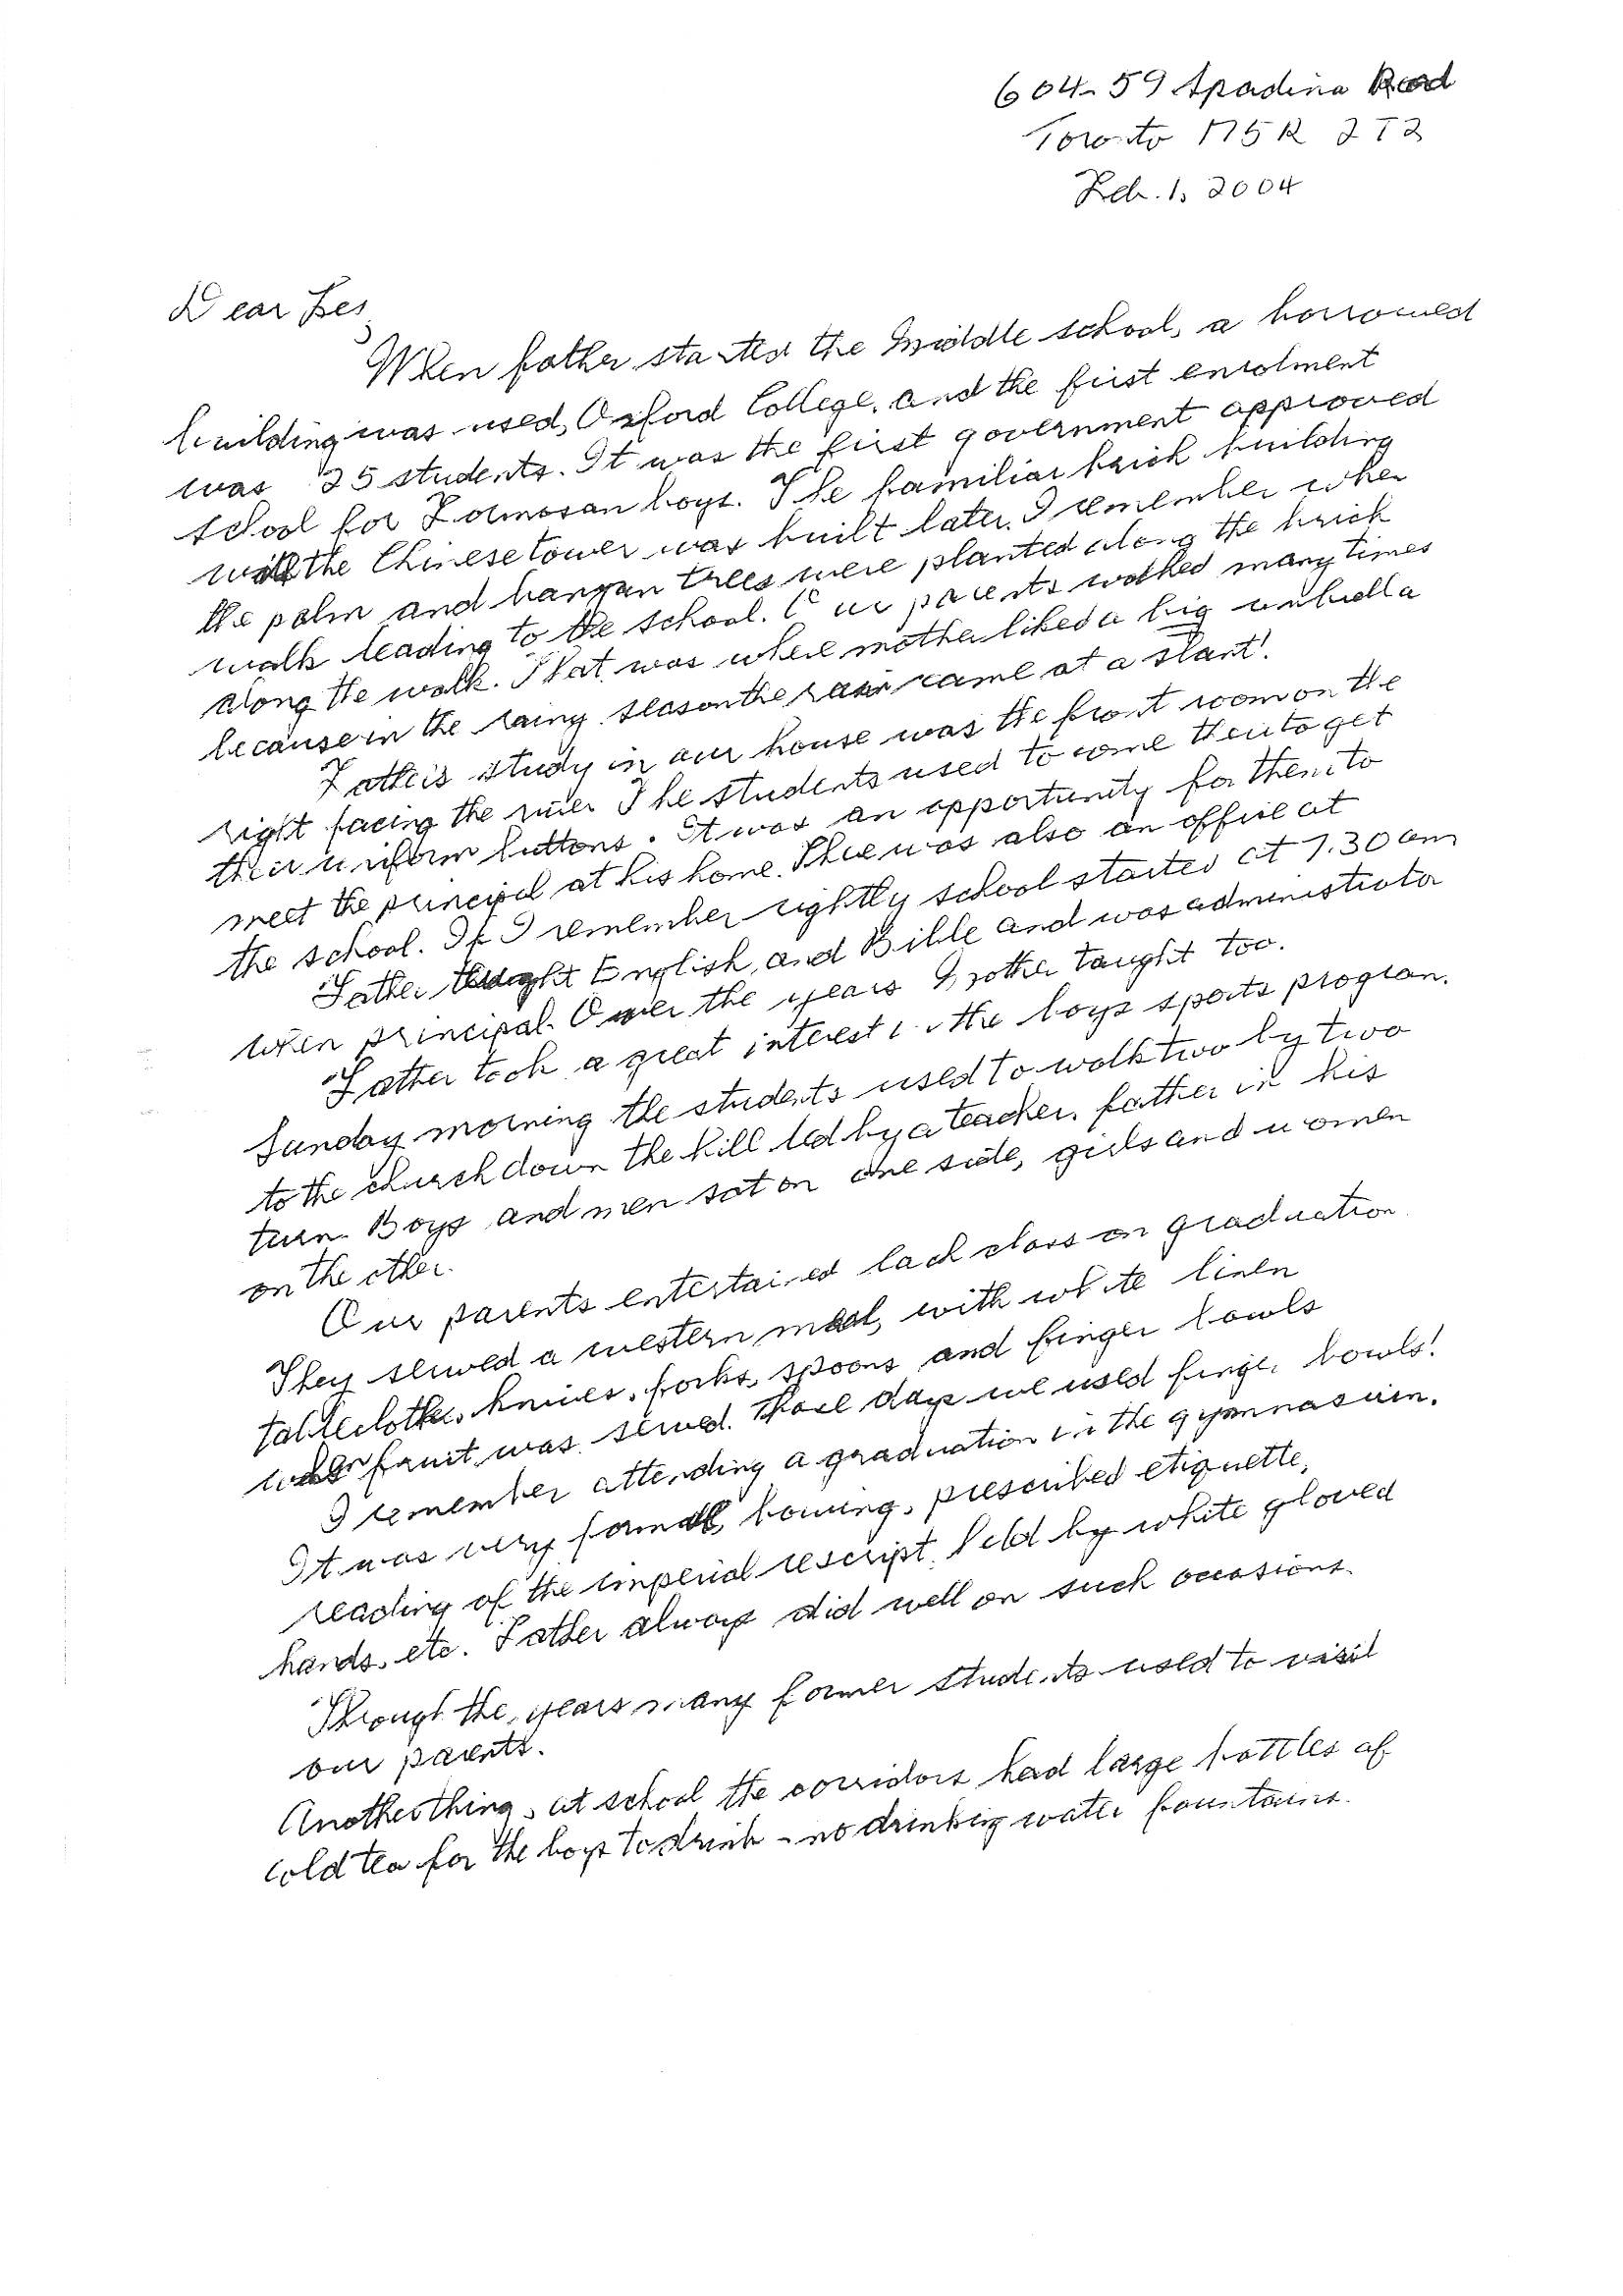 604-59 Spadina Road
Toronto M5R 2T2
Feb. 1, 2004
Dear Les,
When father started the Middle school, a borrowed
building was used, Oxford College, and the first enrolment
was 25 students. It was the first government approved
school for Formosan boys. The familiar brick building
with the Chinese tower was built later. I remember when
the palm and banyan trees were planted along the brick
walk leading to the school. Our parents walked many times
along the walk. That was where mother liked a big umbrella
because in the rainy season the rain came at a slant!
Father's study in our house was the front room on the
right facing the river. The students used to come there to get
their uniform buttons. It was an opportunity for them to
meet the principal at his home. There was also an office at
the school. If I remember rightly school started at 7.30 am
Father taught English, and Bible and was administrator
when principal. Over the years Mother taught too.
Father took a great interest in the boys sports program.
Sunday morning the students used to walk two by two
to the church down the hill led by a teacher, father in his
turn. Boys and men sat on one side, girls and women
on the other.
Our parents entertained each class on graduation.
They served a western meal, with white linen
tablecloths, knives, forks, spoons and finger bowls
when fruit was served. Those days we used finger bowls!
I remember attending a graduation in the gymnasium.
It was very formal, bowing, prescribed etiquette,
reading of the imperial rescript, held by white gloved
hands, etc. Father always did well on such occasions.
Through the years many former students used to visit
our parents.
Another thing, at school the corridors had large bottles of
cold tea for the boys to drink - no drinking water fountains.